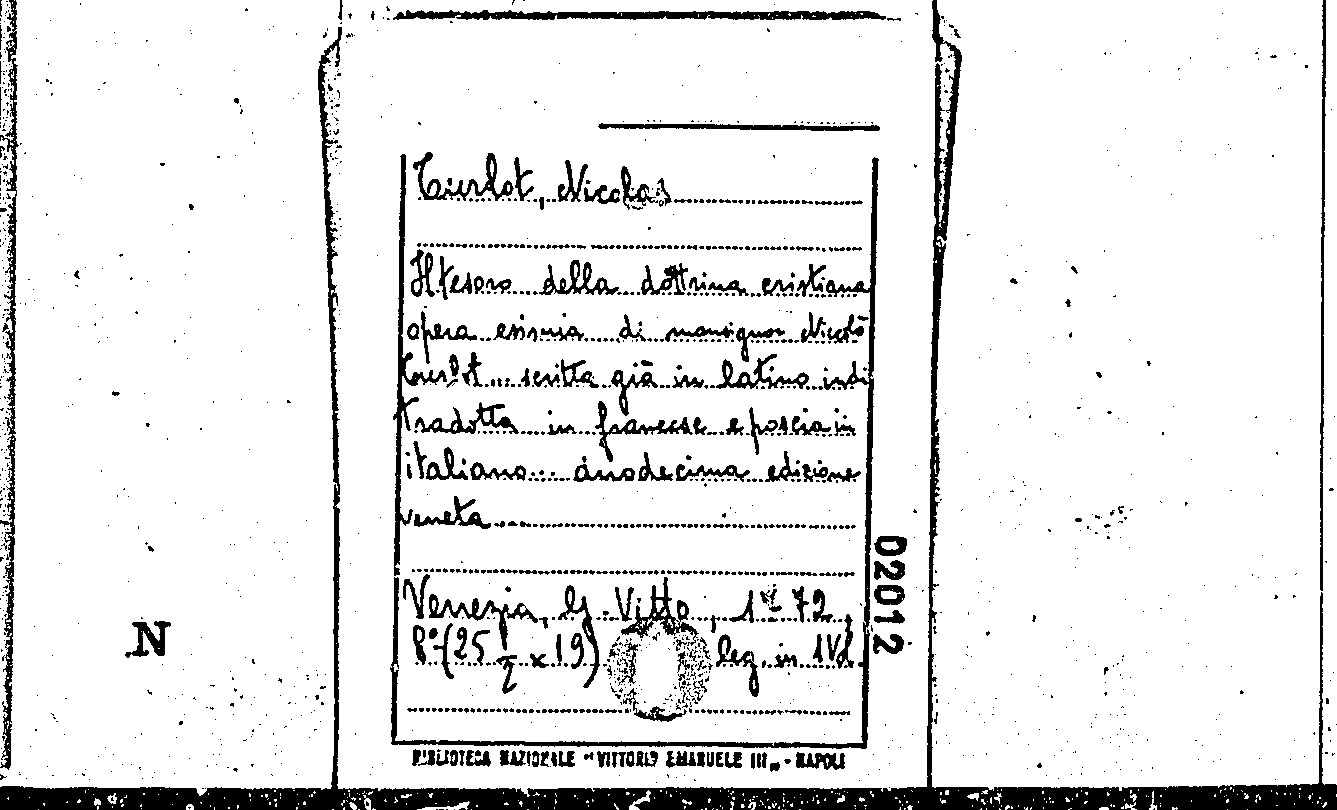 Turlot, Nicolas
Il tesoro della dottrina cristiana
opera esimia di monsignor Nicolò
Turlot... scritta già in latino indi
tradotta in francese e poscia in
italiano... duodecima edizione
veneta...
Venezia, G. Vitto, 72,
8º (25 1/2 x 19) leg. in 1 Vol.
02012
N
BIBLIOTECA NAZIONALE "VITTORIO EMANUELE III„ - NAPOLI